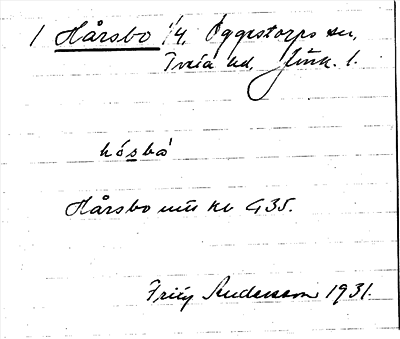 1 Hårsbo 1/4, Öggestorps sn,
Tveta hd, Jönk. l.
hósbò
Hårsbo uu kv G 35.
Fritz Andersson 1931.